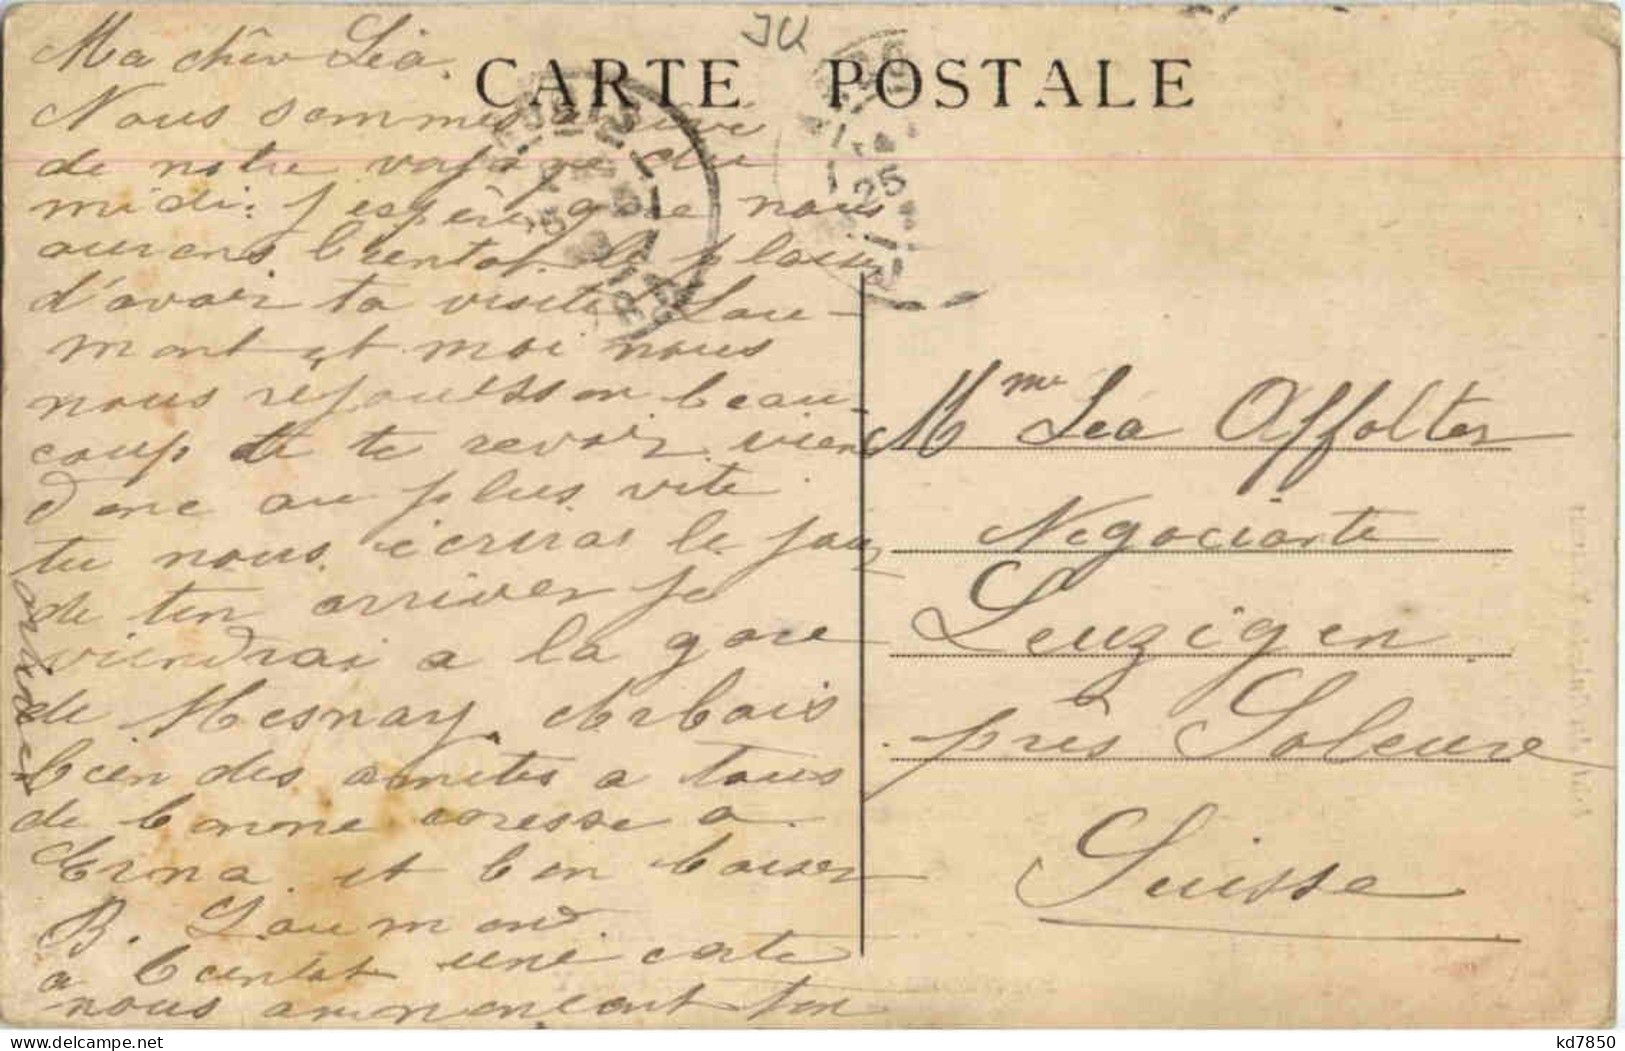 JU
CARTE POSTALE
Ma chèr Léa.
Nous sommes arrivé
de notre voyage du
midi. j'espère que nous
aurons bientot le plaisir
d'avoir ta visite Lau-
mont et moi nous
nous rejouisson beau-
coup de te revoir vien
donc au plus vite.
tu nous écriras le jour
de ton arriver je
viendrai a la gare
de Mesnay. Arbois
bien des amités a tous
de bonne caresse a
Erna et bon baiser
B. Laumont.
a bientot une carte
nous annoncant ton
arriver
25
Mme Léa Affolter
Negociante
Leuzigen
près Soleure
Suisse
kd7850